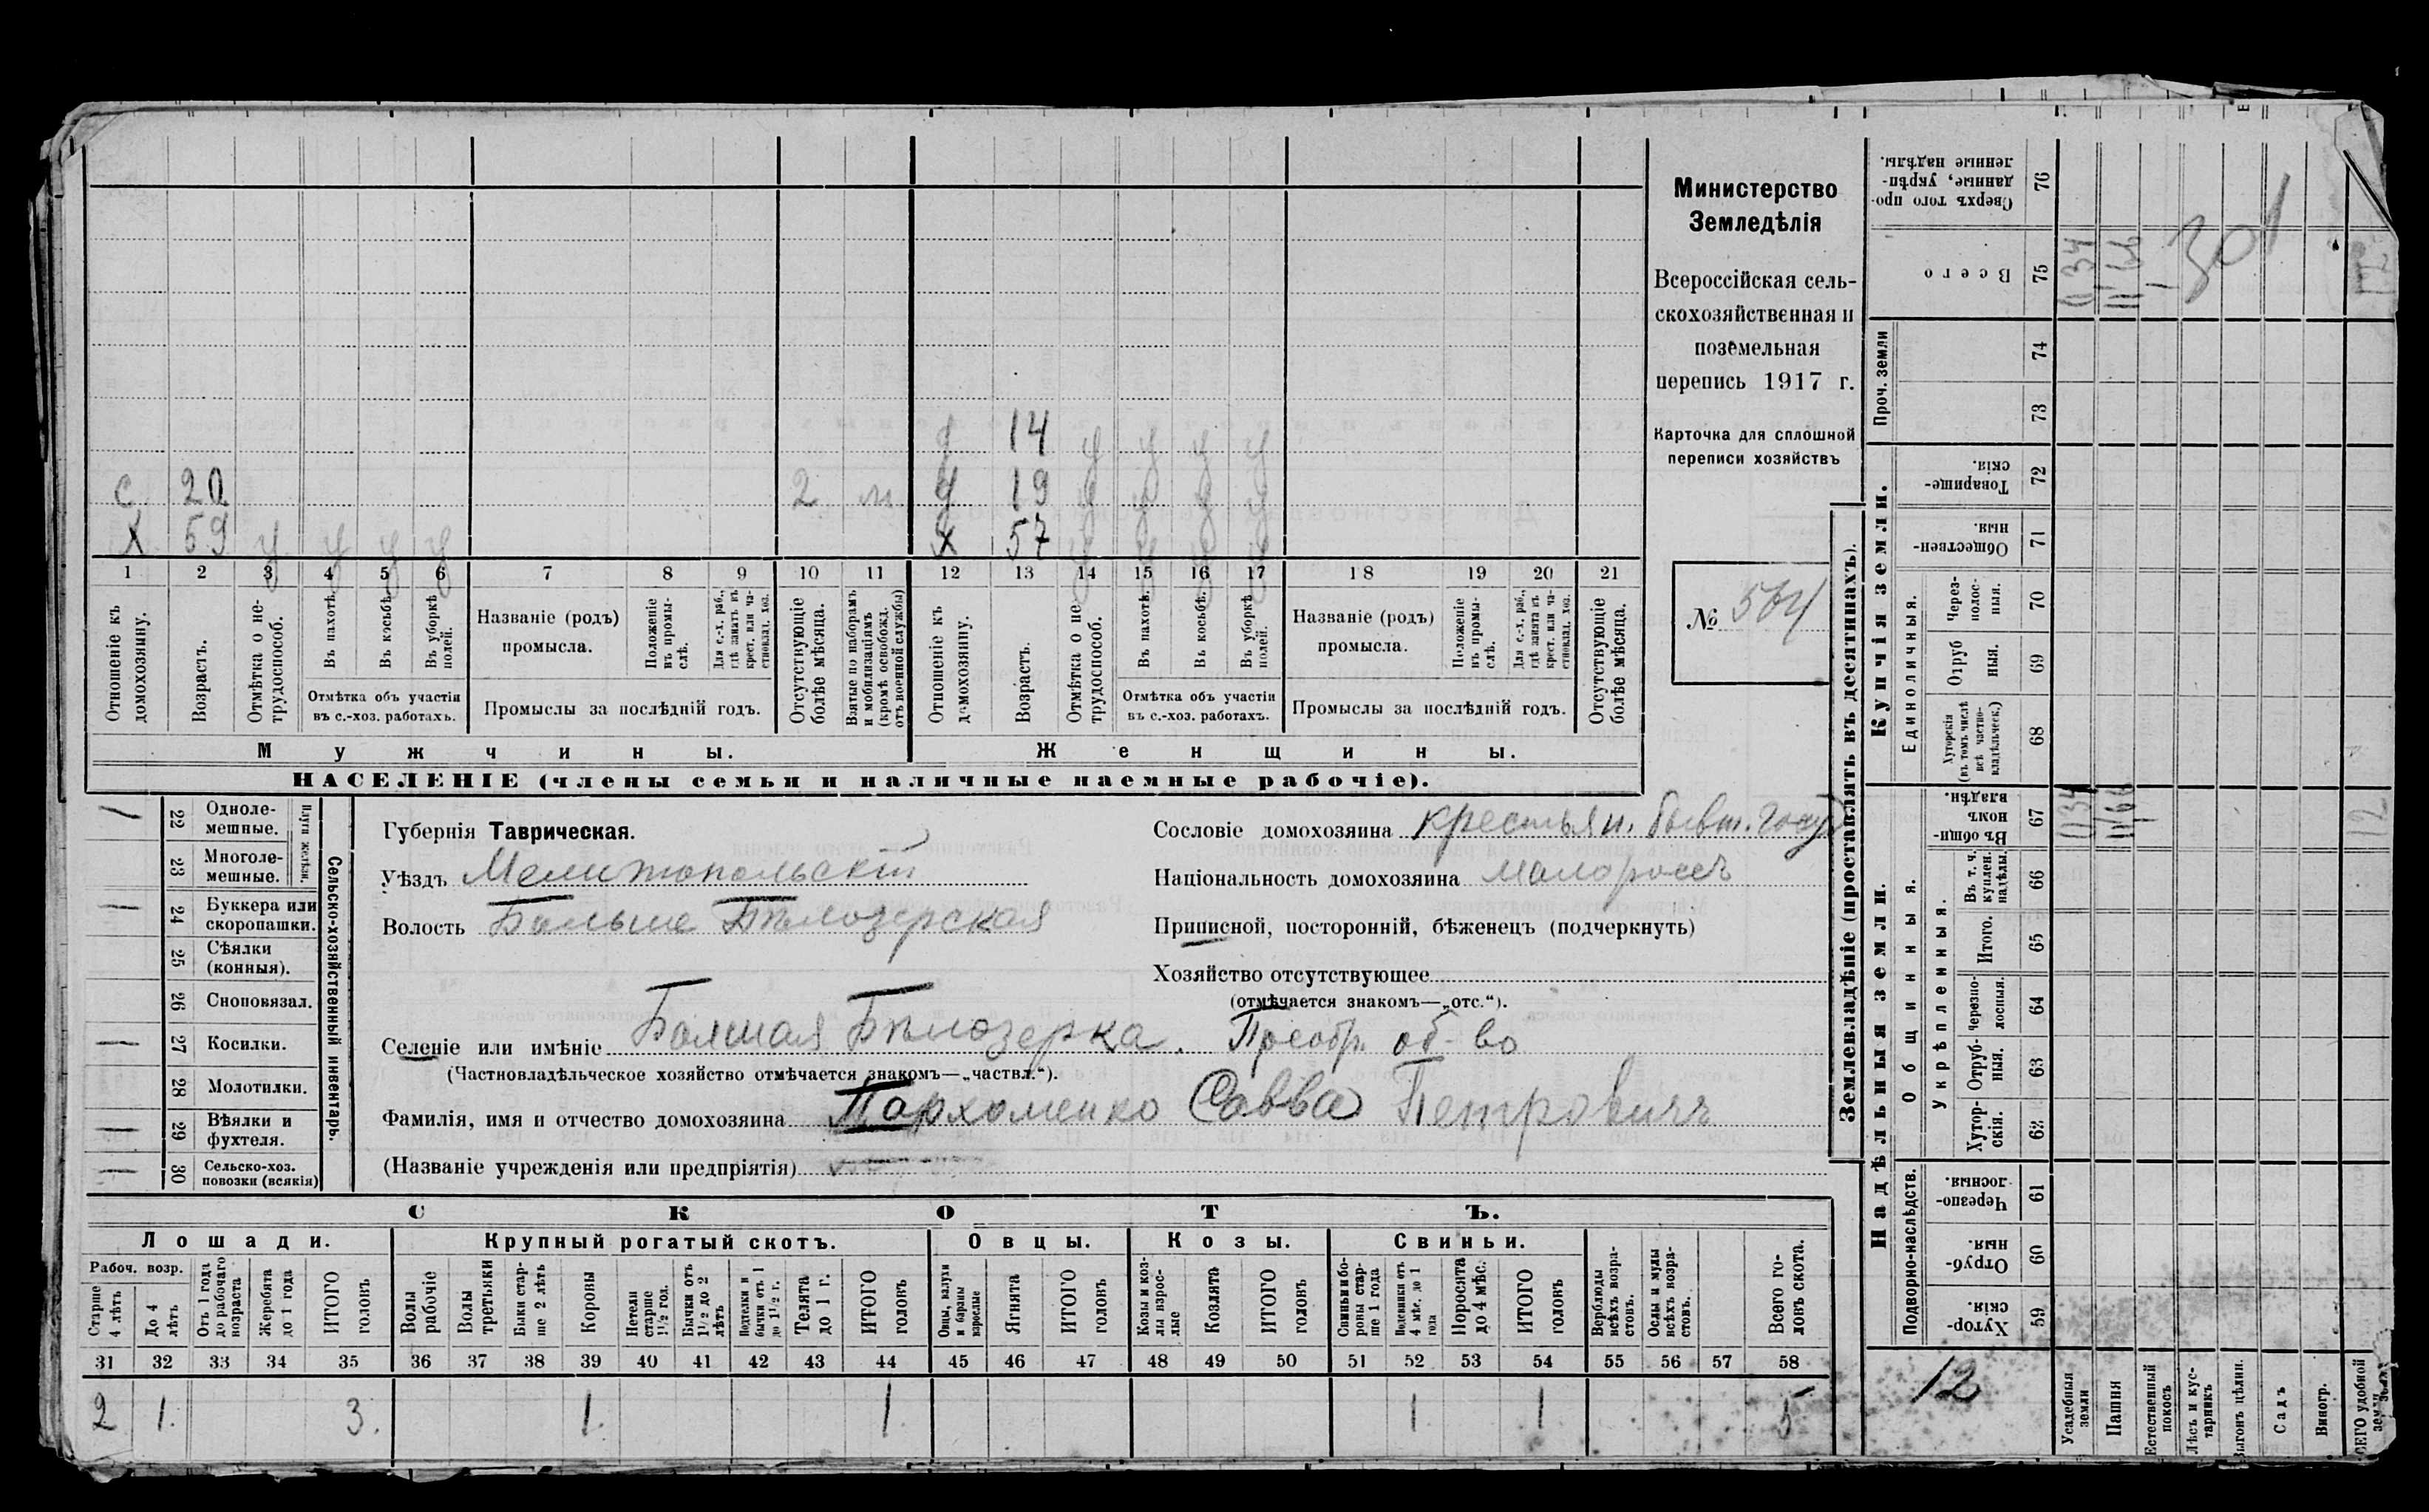 14 у у у у
с 20 2 м 19 у у у у
х 59 у у у у х 57 у у у у
1 2 3 4 5 6 7 8 9 10 11 12 13 14 15 16 17 18 19 20 21
Отношеніе къ домохозяину.
Возрастъ.
Отмѣтка о не-
трудоспособ.
Въ пахотѣ.
Въ косьбѣ.
Въ уборкѣ
полей.
Отмѣтка объ участіи
въ с.-хоз. работахъ.
Названіе (родъ)
промысла.
Положеніе
въ промы-
слѣ.
Для с.-х. раб.,
гдѣ занятъ въ
крест. или ча-
стновлад. хоз.
Промыслы за послѣдній годъ.
Отсутствующіе
болѣе мѣсяца.
Взятые по наборамъ
и мобилизаціямъ
(кромѣ освобожд.
отъ военной службы)
Отношеніе къ
домохозяину.
Возрастъ.
Отмѣтка о не
трудоспособ.
Въ пахотѣ.
Въ косьбѣ.
Въ уборкѣ
полей.
Отмѣтка объ участіи
въ с.-хоз. работахъ.
Названіе (родъ)
промысла.
Положеніе
въ промы-
слѣ.
Для с.-х. раб.,
гдѣ занята въ
крест. или ча-
стновлад. хоз.
Промыслы за послѣдній годъ.
Отсутствующіе
болѣе мѣсяца.
Мужчины.
Женщины.
НАСЕЛЕНІЕ (члены семьи и наличные наемные рабочіе).
Министерство
Земледѣлія
Всероссійская сель-
скохозяйственная и
поземельная
перепись 1917 г.
Карточка для сплошной
переписи хозяйствъ
№ 564
22 Одноле-
мешные.
23 Многоле-
мешные.
Плуги желѣзн.
24 Буккера или
скоропашки.
25 Сѣялки
(конныя).
26 Сноповязал.
27 Косилки.
28 Молотилки.
29 Вѣялки и
фухтеля.
30 Сельско-хоз.
повозки (всякія)
Сельско-хозяйственный инвентарь.
Губернія Таврическая.
Уѣздъ Мелитопольскій
Волость Больше Бѣлозерская
Сословіе домохозяина крестьян. бывш. госуд
Національность домохозяина малороссъ
Приписной, посторонній, бѣженецъ (подчеркнуть)
Хозяйство отсутствующее
(отмѣчается знакомъ—„отс.“).
Селеніе или имѣніе Болшая Бѣлозерка. Преобр. об-во
(Частновладѣльческое хозяйство отмѣчается знакомъ—„частвл.“).
Фамилія, имя и отчество домохозяина Пархоменко Савва Петровичъ
(Названіе учрежденія или предпріятія)
СКОТЪ.
Лошади.
Крупный рогатый скотъ.
Овцы.
Козы.
Свиньи.
Рабоч. возр.
Старше
4 лѣтъ
До 4
лѣтъ
Отъ 1 года
до рабочаго
возраста
Жеребята
до 1 года
ИТОГО
головъ
Волы
рабочіе
Волы
третьяки
Быки стар-
ше 2 лѣтъ
Коровы
Нетели
старше
1½ год.
Бычки отъ
1½ до 2
лѣтъ
Подтелки и
бычки отъ 1
до 1½ г.
Телята
до 1 г.
ИТОГО
головъ
Овцы, валухи
и бараны
взрослые
Ягнята
ИТОГО
головъ
Козы и коз-
лы взрос-
лые
Козлята
ИТОГО
головъ
Свиньи и бо-
ровы стар-
ше 1 года
Подсвинки отъ
4 мѣс. до 1
года
Поросята
до 4 мѣс.
ИТОГО
головъ
Верблюды
всѣхъ возра-
стовъ.
Ослы и мулы
всѣхъ возра-
стовъ.
Всего го-
ловъ скота.
31 32 33 34 35 36 37 38 39 40 41 42 43 44 45 46 47 48 49 50 51 52 53 54 55 56 57 58
2 1. 3. 1. 1. 1 1 5
Землевладѣніе (проставлять въ десятинахъ).
Надѣльныя земли.
Купчія земли.
Проч. земли
Сверхъ того про-
данные, укрѣп-
ленные надѣлы.
76
Всего 75
74
73
Товарище-
скія. 72
Обществен-
ныя. 71
Единоличныя.
Через-
полос-
ныя. 70
Отруб
ныя. 69
Хуторскія
(въ томъ числѣ
всѣ частно-
владѣльческ.) 68
Общинныя.
Въ общин-
номъ
владѣн. 67
Укрѣпленныя.
Въ т. ч.
куплен.
надѣлы. 66
Итого. 65
Черезпо-
лосныя. 64
Отруб-
ныя. 63
Хутор-
скія. 62
Подворно-наслѣдств.
Черезпо-
лосныя. 61
Отруб-
ныя. 60
Хутор-
скія. 59
301
12
Усадебныя
земли
Пашня
Естественный
покосъ
Лѣсъ и кус-
тарникъ
Выгонъ цѣлин.
Садъ
Виногр.